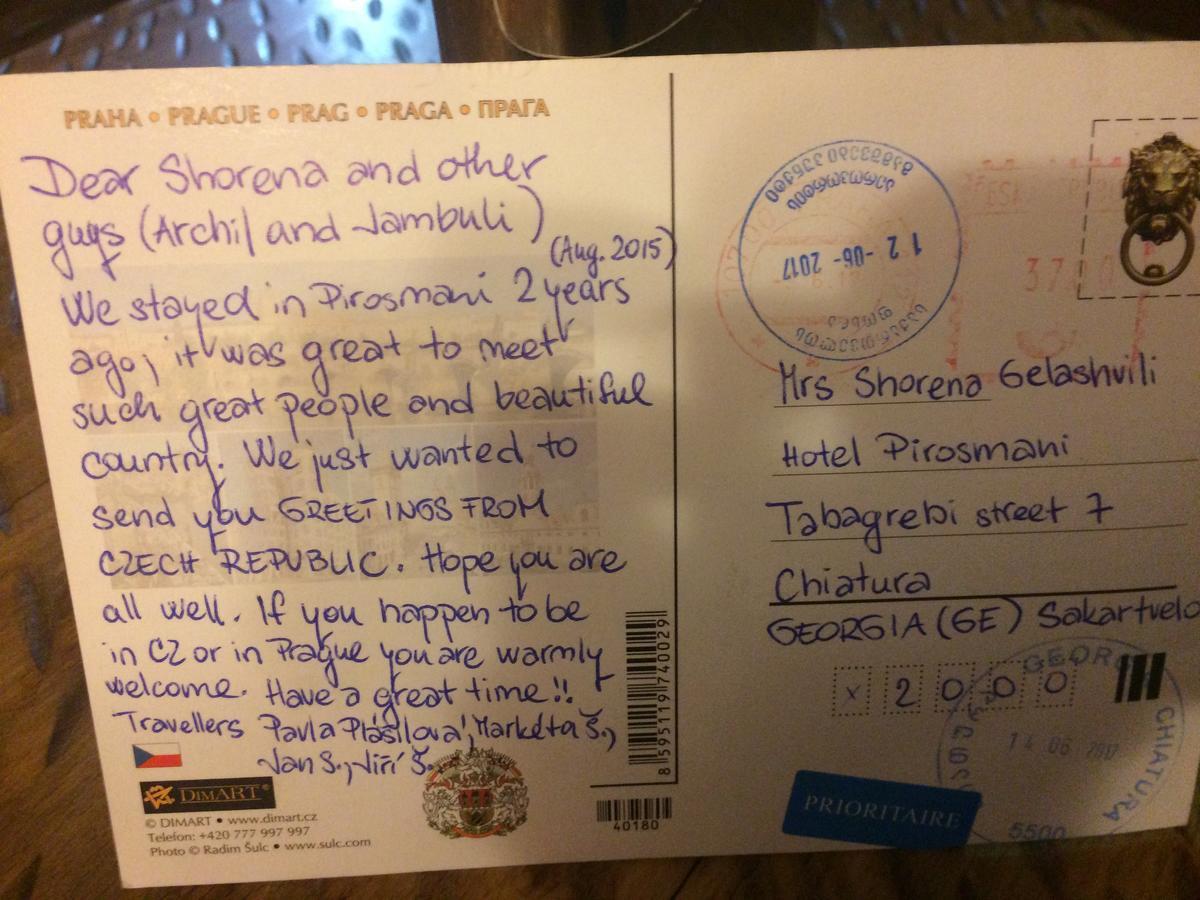 PRAHA • PRAGUE • PRAG • PRAGA • ПРАГА
Dear Shorena and other
guys (Archil and Jambuli)
(Aug. 2015)
We stayed in Pirosmani 2 years
ago, it was great to meet
such great people and beautiful
country. We just wanted to
send you GREETINGS FROM
CZECH REPUBLIC. Hope you are
all well. If you happen to be
in CZ or in Prague you are warmly
welcome. Have a great time!!
Travellers Pavla Plášilová, Markéta Š.,
Jan S., Jiří Š.
DIMART
© DIMART • www.dimart.cz
Telefon: +420 777 997 997
Photo © Radim Šulc • www.sulc.com
8 595119 740029
40180
12-06-2017
Mrs Shorena Gelashvili
Hotel Pirosmani
Tabagrebi street 7
Chiatura
GEORGIA (GE) Sakartvelo
x 2000
14 06 2017
CHIATURA
5500
PRIORITAIRE